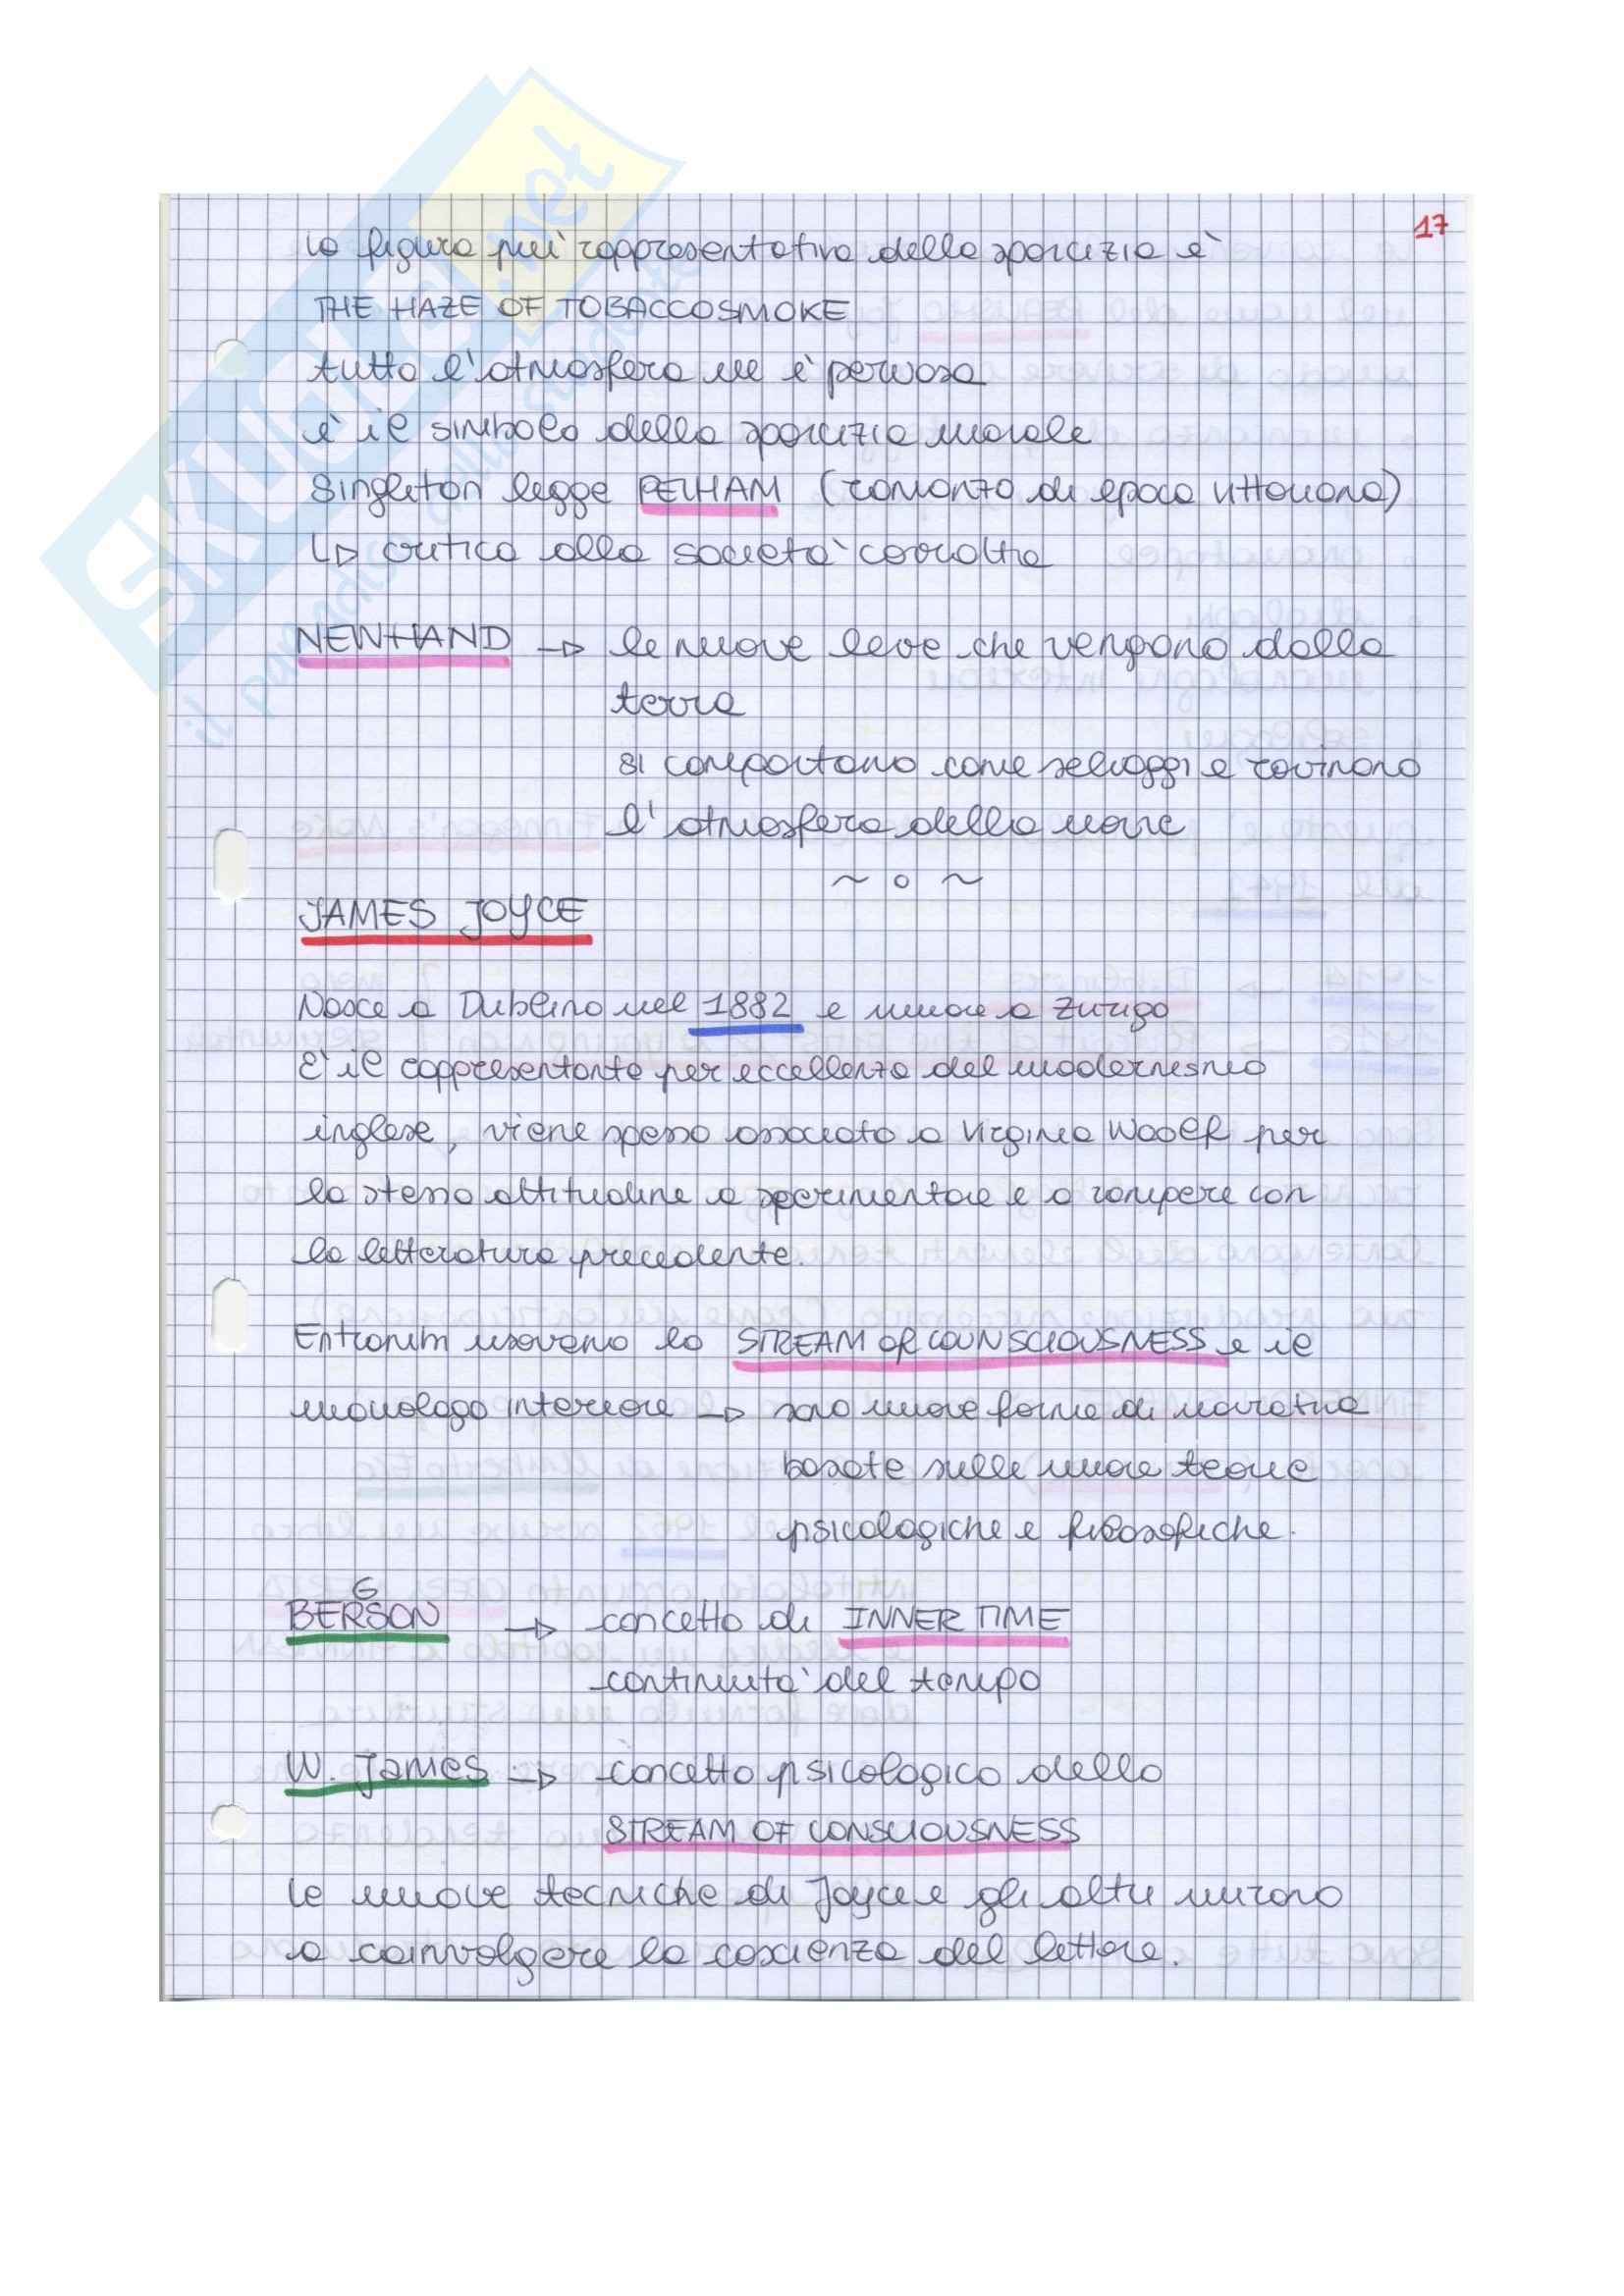 17
la figura più rappresentativa della sporcizia è
THE HAZE OF TOBACCOSMOKE
tutta l'atmosfera ne è pervasa
è il simbolo della sporcizia morale
Singleton legge PELHAM (romanzo di epoca vittoriana)
↳ critica alla società corrotta
NEWHAND → le nuove leve che vengono dalla
terra
si comportano come selvaggi e rovinano
l'atmosfera della nave
~ o ~
JAMES JOYCE
Nasce a Dublino nel 1882 e muore a Zurigo
E' il rappresentante per eccellenza del modernismo
inglese, viene spesso associato a Virginia Woolf per
la stessa attitudine a sperimentare e a rompere con
la letteratura precedente.
Entrambi usavano lo STREAM OF COUNSCIOUSNESS e il
monologo interiore → sono nuove forme di narrativa
basate sulle nuove teorie
psicologiche e filosofiche.
G
BERSON → concetto di INNER TIME
continuità del tempo
W. James → concetto psicologico dello
STREAM OF CONSCIOUSNESS
le nuove tecniche di Joyce e gli altri mirano
a coinvolgere la coscienza del lettore.
SKUOLA.net
il paradiso dello studente